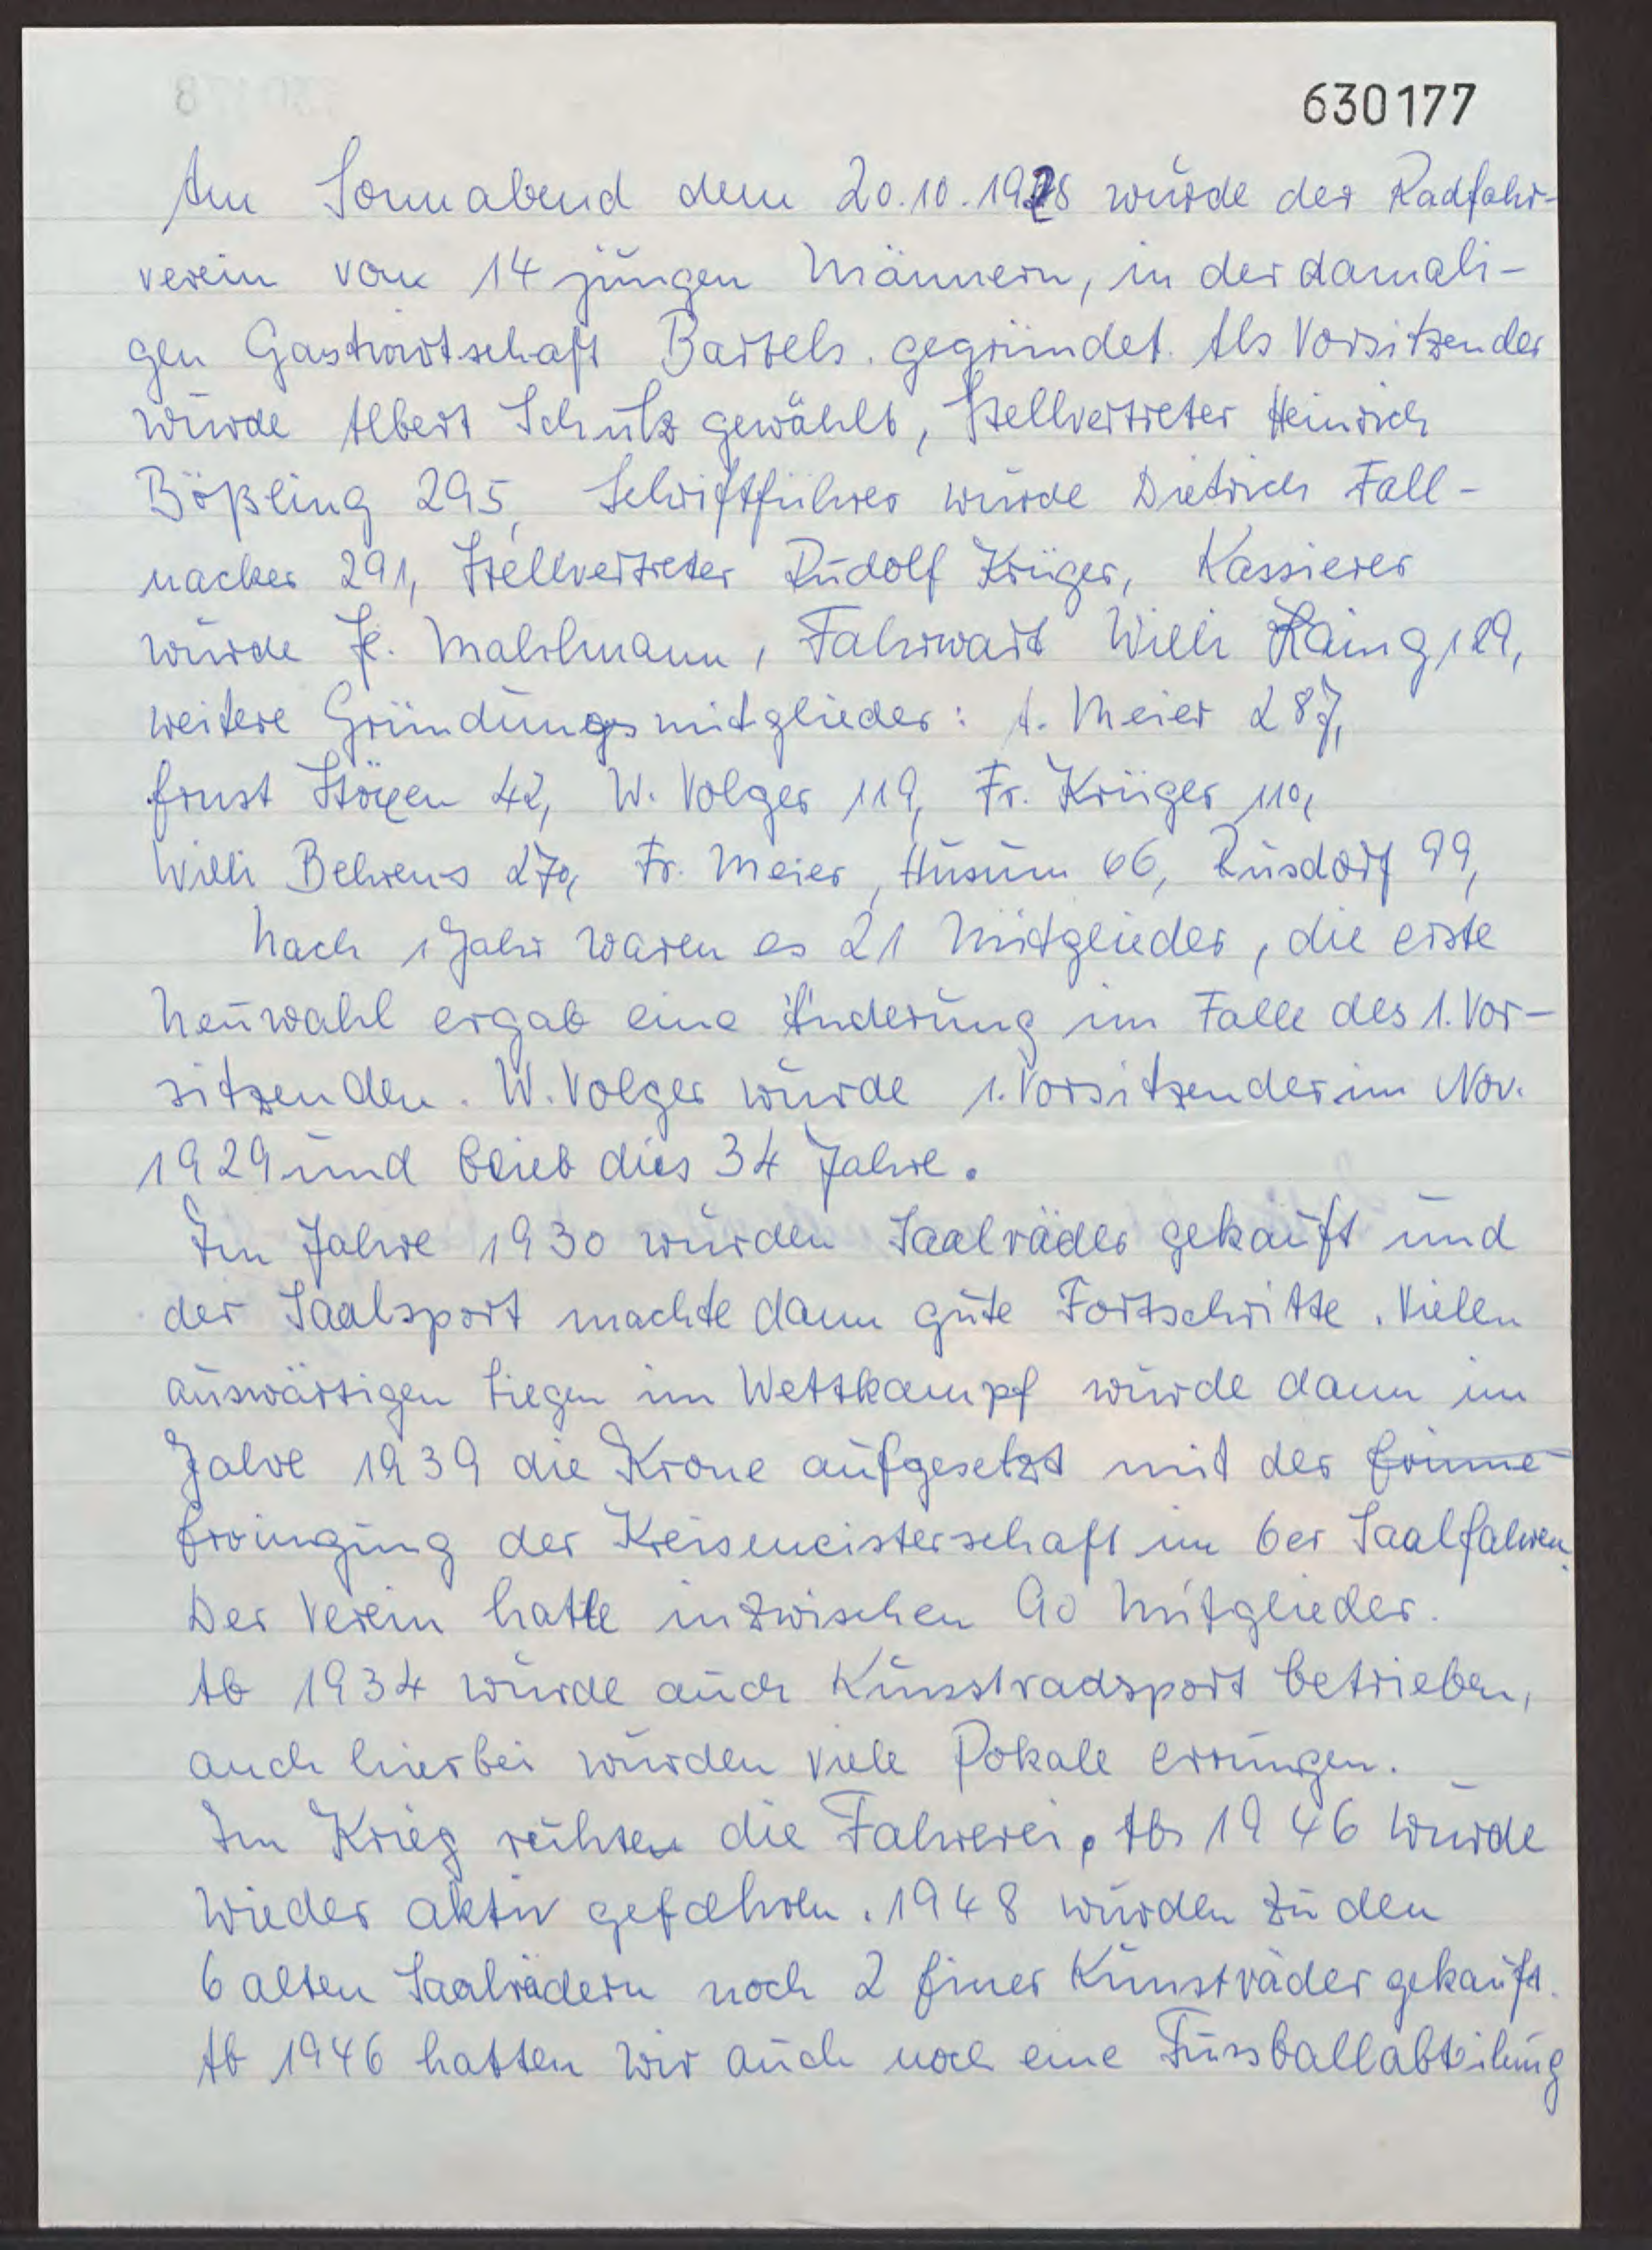 630177
Am Sonnabend dem 20.10.1928 wurde der Radfahr-
verein von 14 jungen Männern, in der damali-
gen Gastwirtschaft Bartels. gegründet. Als Vorsitzender
wurde Albert Schulz gewählt, Stellvertreter Heinrich
Bößling 295, Schriftführer wurde Dietrich Fall-
nacker 291, Stellvertreter Rudolf Krüger, Kassierer
wurde H. Mahlmann, Fahrwart Willi Haing 189,
weitere Gründungsmitglieder: A. Meier 287,
Ernst Stöxen 42, W. Volger 119, Fr. Krüger 110,
Willi Behrens 270, Fr. Meier, Husum 66, Rusdorf 99,
Nach 1 Jahr waren es 21 Mitglieder, die erste
Neuwahl ergab eine Änderung im Falle des 1. Vor-
sitzenden. W. Volger wurde 1. Vorsitzender im Nov.
1929 und blieb dies 34 Jahre.
Im Jahre 1930 wurden Saalräder gekauft und
der Saalsport machte dann gute Fortschritte. Vielen
auswärtigen Siegen im Wettkampf wurde dann im
Jahre 1939 die Krone aufgesetzt mit der
Erringung der Kreismeisterschaft im 6er Saalfahren.
Der Verein hatte inzwischen 90 Mitglieder.
Ab 1934 wurde auch Kunstradsport betrieben,
auch hierbei wurden viele Pokale errungen.
Im Krieg ruhte die Fahrerei. Ab 1946 wurde
wieder aktiv gefahren. 1948 wurden zu den
6 alten Saalrädern noch 2 Einer Kunsträder gekauft.
Ab 1946 hatten wir auch noch eine Fussballabteilung